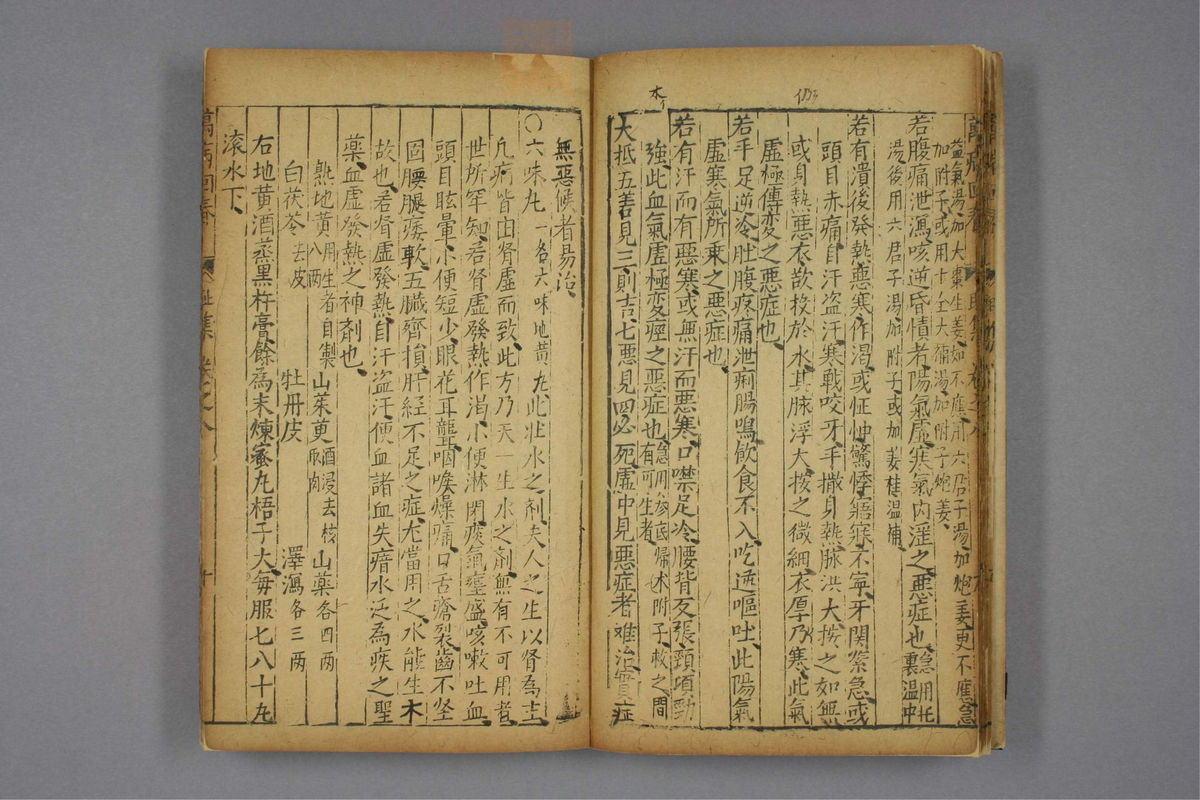 益氣湯加大棗生姜如不應用六君子湯加炮姜更不應急
加附子或用十全大補湯加附子炮姜
若腹痛泄瀉咳逆昏憒者陽氣虛寒氣內淫之惡症也急用托裏溫中
湯後用六君子湯加附子或加姜桂溫補
若有潰後發熱惡寒作渴或怔忡驚悸寤寐不寧牙関緊急或
頭目赤痛自汗盗汗寒戰咬牙手撒身熱脉洪大按之如無
或身熱惡衣欲投於水其脉浮大按之微細衣厚乃寒此氣
虛極傳変之惡症也
若手足逆冷肚腹疼痛泄痢腸鳴飲食不入吃逆嘔吐此陽氣
虛寒氣所乗之惡症也
若有汗而有惡寒或無汗而惡寒口噤足冷腰背反張頸項勁
強此血氣虛極変痙之惡症也急用参茋歸术附子救之間有可生者
大抵五善見三則吉七惡見四必死虛中見惡症者难治實症
無惡候者易治
○六味丸一名六味地黄丸此壮水之剤夫人之生以腎為主
凡病皆由腎虛而致此方乃天一生水之剤無有不可用者
世所罕知若腎虛發熱作渴小便淋閉痰氣壅盛咳嗽吐血
頭目眩暈小便短少眼花耳聾咽喉燥痛口舌瘡裂齒不坚
固腰腿痿軟五臓齊損肝経不足之症尤當用之水能生木
故也若腎虛發熱自汗盗汗便血諸血失瘖水泛為痰之聖
藥血虛發熱之神剤也
熟地黄八两用生者自製 山茱萸酒浸去核取肉 山藥各四两
白茯苓去皮 牡丹皮 澤瀉各三两
右地黄酒蒸黒杵膏餘為末煉蜜丸梧子大每服七八十丸
滚水下
萬病回春